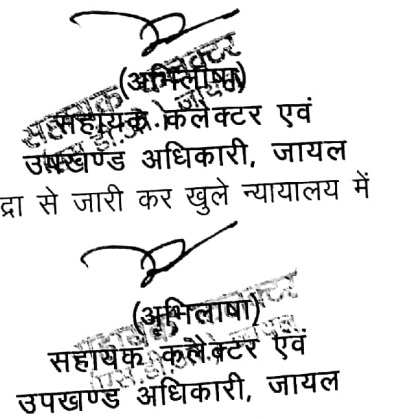 (अभिलाषा)
सहायक कलेक्टर एवं
उपखण्ड अधिकारी, जायल
द्रा से जारी कर खुले न्यायालय में
(अभिलाषा)
सहायक कलेक्टर एवं
उपखण्ड अधिकारी, जायल